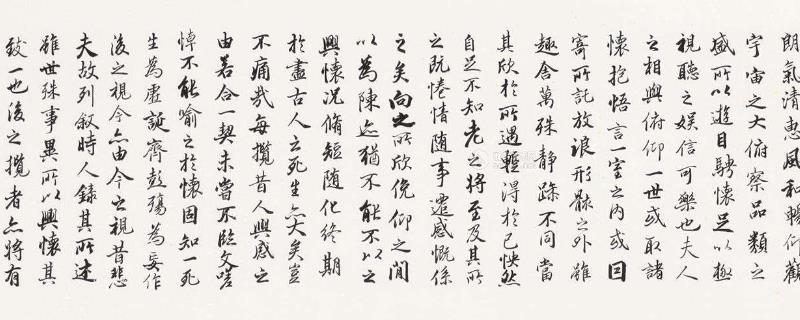 朗氣清惠風和暢仰觀
宇宙之大俯察品類之
盛所以遊目騁懷足以極
視聽之娛信可樂也夫人
之相與俯仰一世或取諸
懷抱悟言一室之內或因
寄所託放浪形骸之外雖
趣舍萬殊靜躁不同當
其欣於所遇暫得於己怏然
自足不知老之將至及其所
之既惓情隨事遷感慨係
之矣向之所欣俛仰之閒
以為陳迹猶不能不以之
興懷況脩短隨化終期
於盡古人云死生亦大矣豈
不痛哉每攬昔人興感之
由若合一契未嘗不臨文嗟
悼不能喻之於懷固知一死
生為虛誕齊彭殤為妄作
後之視今亦由今之視昔悲
夫故列敘時人錄其所述
雖世殊事異所以興懷其
致一也後之攬者亦將有